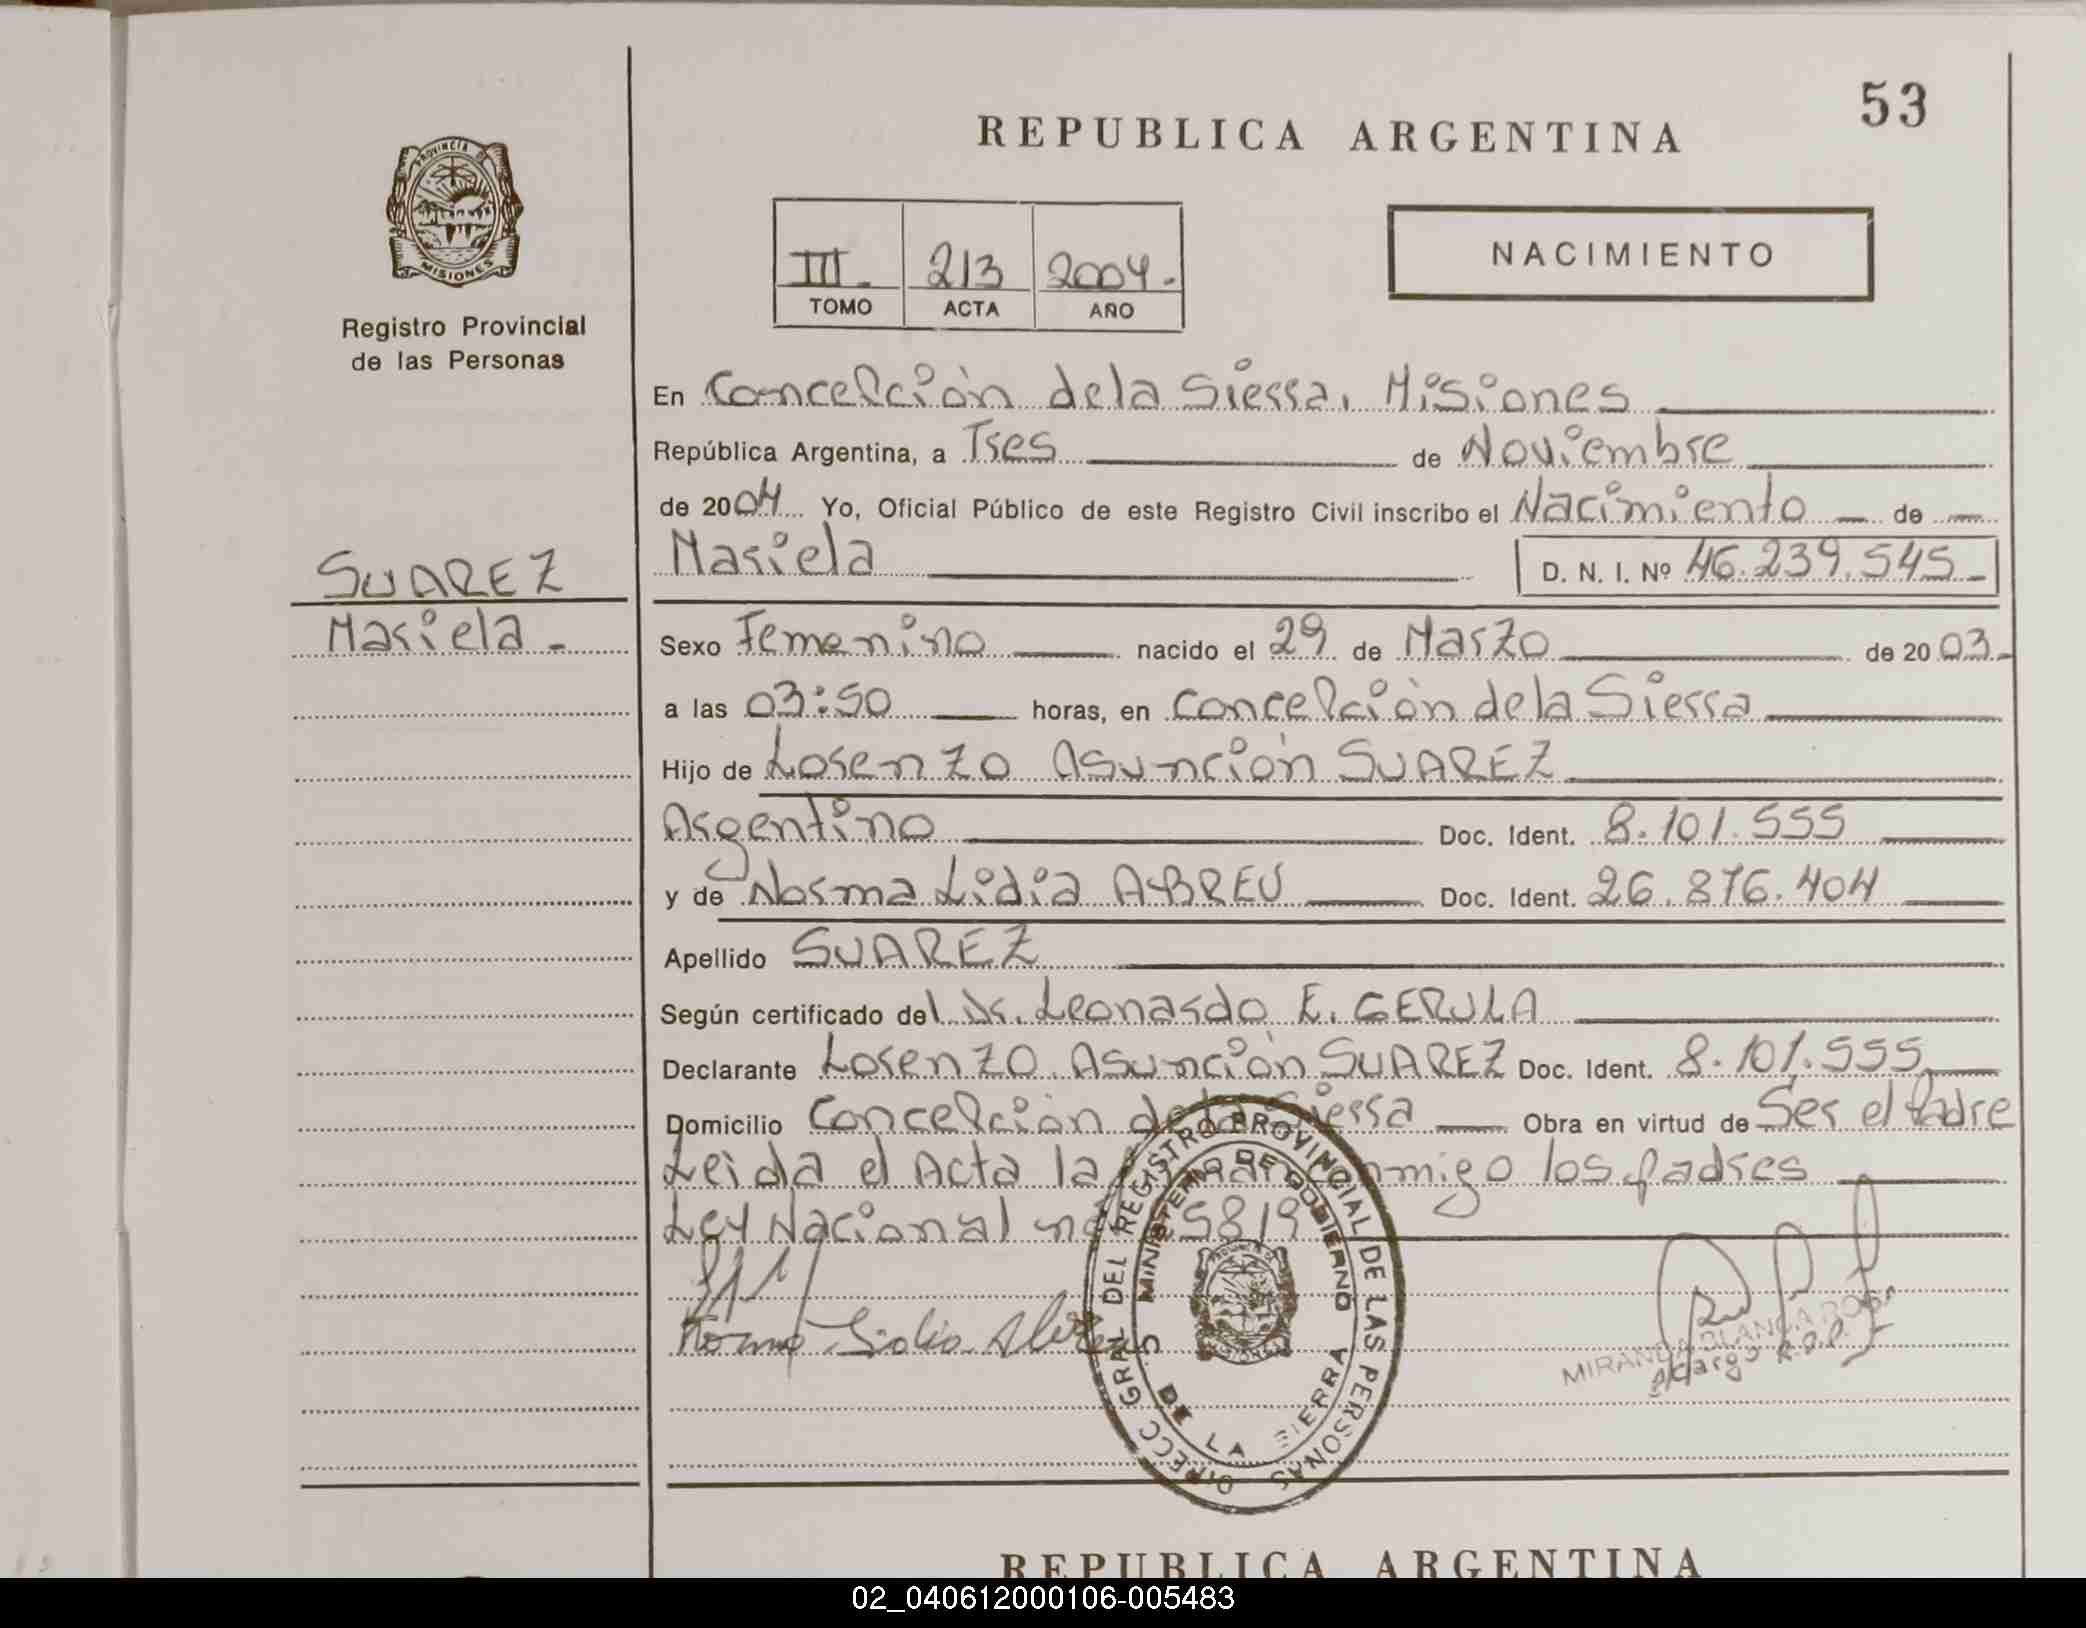 53
REPUBLICA ARGENTINA
PROVINCIA D
MISIONES
Registro Provincial
de las Personas
III. 213 2004.
TOMO ACTA AÑO
NACIMIENTO
En Concepción de la Sierra, Misiones
República Argentina, a Tres de Noviembre
de 2004 Yo, Oficial Público de este Registro Civil inscribo el Nacimiento de
Mariela D. N. I. Nº 46.239.545
SUAREZ
Mariela
Sexo Femenino nacido el 29 de Marzo de 2003
a las 03:50 horas, en Concepción de la Sierra
Hijo de Lorenzo Asunción SUAREZ
Argentino Doc. Ident. 8.101.555
y de Norma Lidia ABREU Doc. Ident. 26.876.404
Apellido SUAREZ
Según certificado del Dr. Leonardo E. GERULA
Declarante Lorenzo Asunción SUAREZ Doc. Ident. 8.101.555
Domicilio Concepción de la Sierra Obra en virtud de Ser el padre
Leida el Acta la conmigo los padres
Ley Nacional 5819
Norma Lidia Abreu
MIRANDA BLANCA ROSA
A/cargo R.P.P.
DIRECC GRAL DEL REGISTRO PROVINCIAL DE LAS PERSONAS
MINISTERIO DE GOBIERNO
C. DE LA SIERRA
REPUBLICA ARGENTINA
02_040612000106-005483